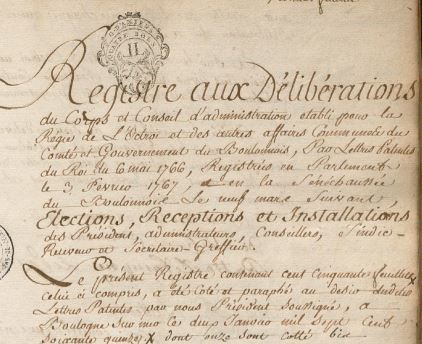 Registre aux Délibérations
du Corps et Conseil d'administration etabli pour la
Regie de L'Octroi et des autres affaires Communes du
Comté et Gouvernement du Boulonnois, Par Lettres Patentes
du Roi du 6 mai 1766, Registrées en Parlement
le 3 Fevrier 1767, et en la Sénéchaussée
du Boulonnois le neuf mars suivant,
Elections, Receptions et Installations
des Président, administrateurs, Conseillers, Sindic
Receveur et Sécrétaire-Greffier.
Le présent Registre contenant cent cinquante feuillets
celui ci compris, a été coté et paraphé au desir desdites
Lettres Patentes par nous Président soussigné, a
Boulogne sur mer le deux Janvier mil Sept Cent
soixante quinze x dont onze sont cotté bis